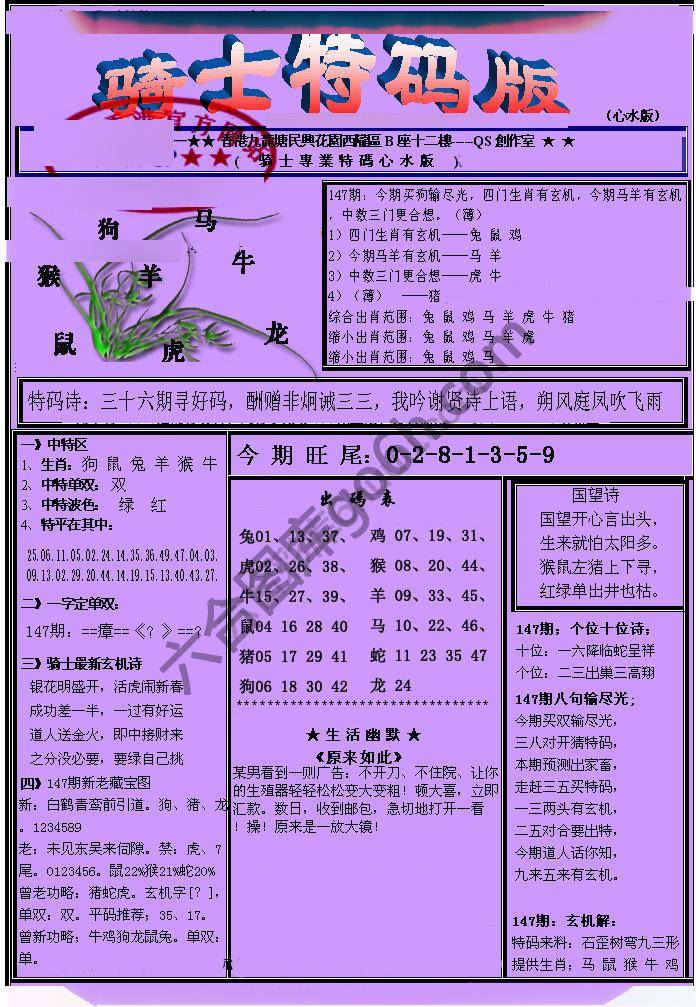 骑士特码版
（心水版）
★★ 香港九龍塘民興花園西福區 B 座十二樓----QS 創作室 ★ ★
( 騎 士 專 業 特 碼 心 水 版 )
147期：今期买狗输尽光，四门生肖有玄机，今期马羊有玄机
，中数三门更合想。（薄）
1）四门生肖有玄机——兔 鼠 鸡
2）今期马羊有玄机——马 羊
3）中数三门更合想——虎 牛
4）（薄） ——猪
综合出肖范围：兔 鼠 鸡 马 羊 虎 牛 猪
缩小出肖范围：兔 鼠 鸡 马 羊 虎
缩小出肖范围：兔 鼠 鸡 马
狗
马
猴
羊
牛
鼠
虎
龙
特码诗：三十六期寻好码，酬赠非炯诫三三，我吟谢贤诗上语，朔风庭凤吹飞雨
一》中特区
1、生肖：狗 鼠 兔 羊 猴 牛
2、中特单双：双
3、中特波色： 绿 红
4、特平在其中：
25.06.11.05.02.24.14.35.36.49.47.04.03.
09.13.02.29.20.44.14.19.15.13.40.43.27.
二》一字定单双：
147期：==瘴==《？》==？
三》骑士最新玄机诗
银花明盛开，活虎闹新春
成功差一半，一过有好运
道人送金火，即中接财来
之分没必要，要绿自己挑
四》147期新老藏宝图
新：白鹤青鸾前引道。狗、猪、龙
。1234589
老：未见东吴来伺隙。禁：虎、7
尾。0123456。鼠22%猴21%蛇20%
曾老功略：猪蛇虎。玄机字[？]，
单双：双。平码推荐；35、17。
曾新功略；牛鸡狗龙鼠兔。单双：
单。
今 期 旺 尾：0-2-8-1-3-5-9
出 码 表
兔01、13、37、 鸡 07、19、31、
虎02、26、38、 猴 08、20、44、
牛15、27、39、 羊 09、33、45、
鼠04 16 28 40 马 10、22、46、
猪05 17 29 41 蛇 11 23 35 47
狗06 18 30 42 龙 24
*********************************
★ 生 活 幽 默 ★
《原来如此》
某男看到一则广告：不开刀、不住院、让你
的生殖器轻轻松松变大变粗！顿大喜，立即
汇款。数日，收到邮包，急切地打开一看
！操！原来是一放大镜！
国望诗
国望开心言出头，
生来就怕太阳多。
猴鼠左猪上下寻，
红绿单出井也枯。
147期；个位十位诗；
十位：一六降临蛇呈祥
个位：二三出巢三高翔
147期八句输尽光；
今期买双输尽光，
三八对开猜特码，
本期预测出家畜，
走赶三五买特码，
一三两头有玄机，
二五对合要出特，
今期道人话你知，
九来五来有玄机。
147期：玄机解：
特码来料：石歪树弯九三形
提供生肖；马 鼠 猴 牛 鸡
六合图库goch.com